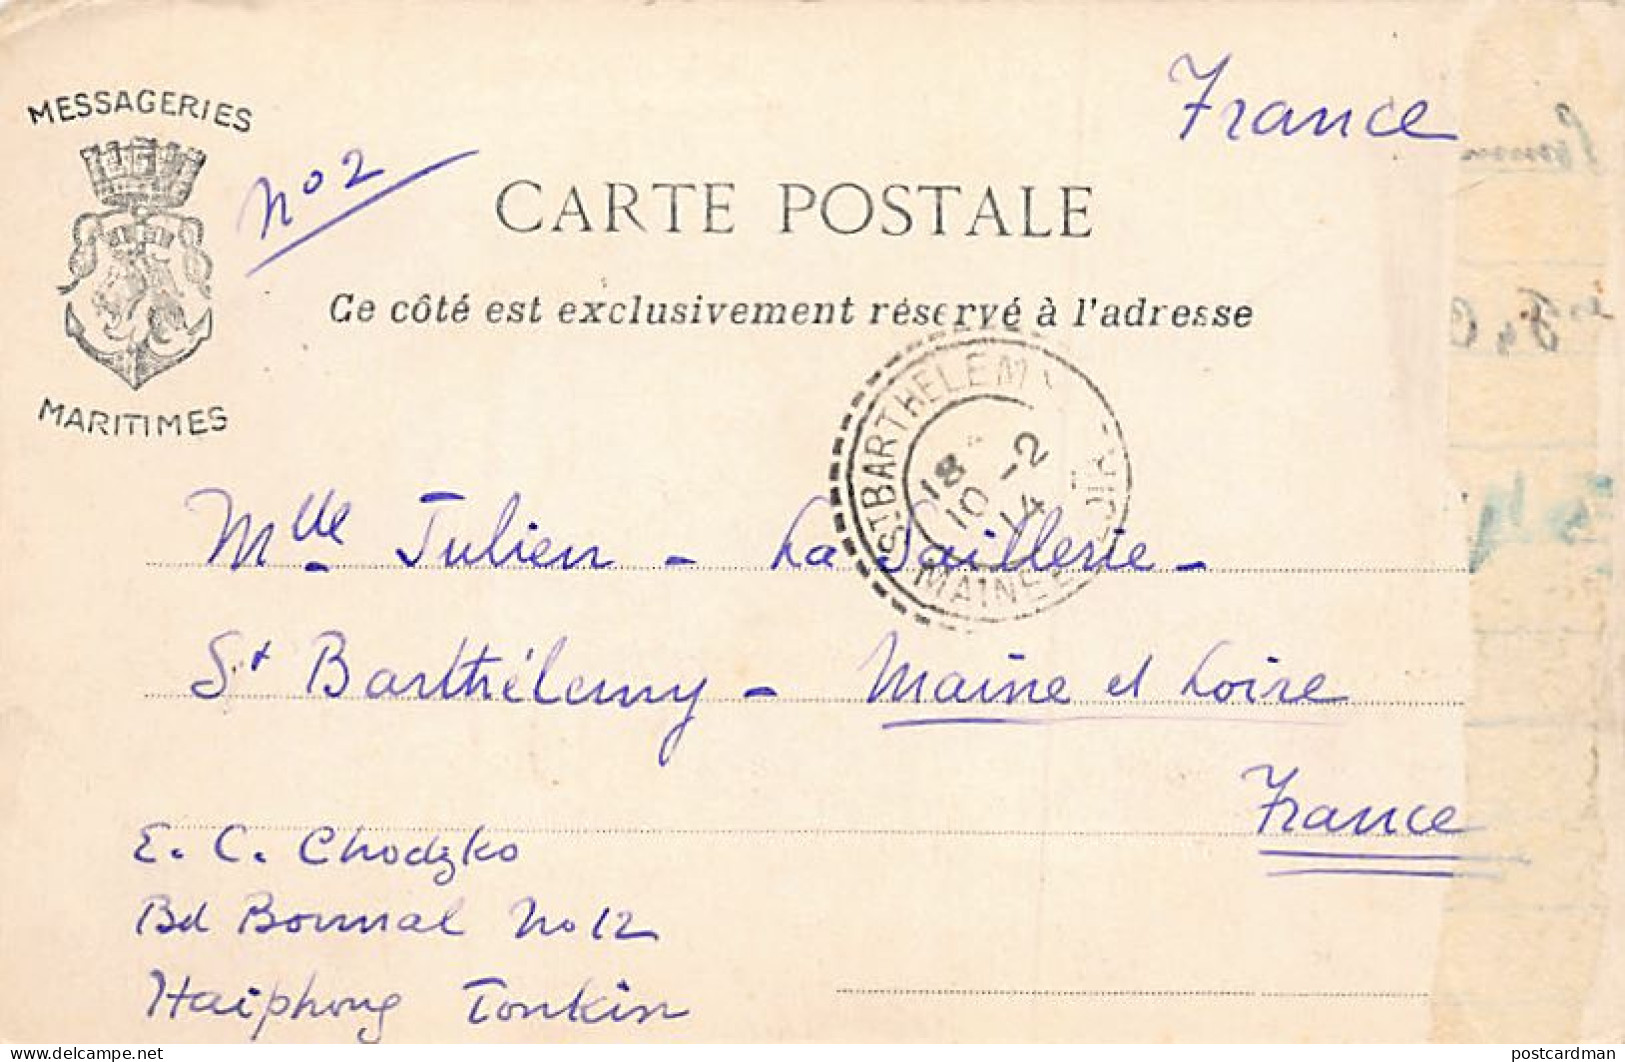 France
MESSAGERIES
MARITIMES
no 2
CARTE POSTALE
Ce côté est exclusivement réservé à l'adresse
ST BARTHELEMY
18
10 -2
14
MAINE
Mlle Julien - La Saillerie -
St Barthélemy - Maine et Loire
France
E. C. Chodzko
Bd Bonnal No 12
Haiphong Tonkin
delcampe.net
postcardman